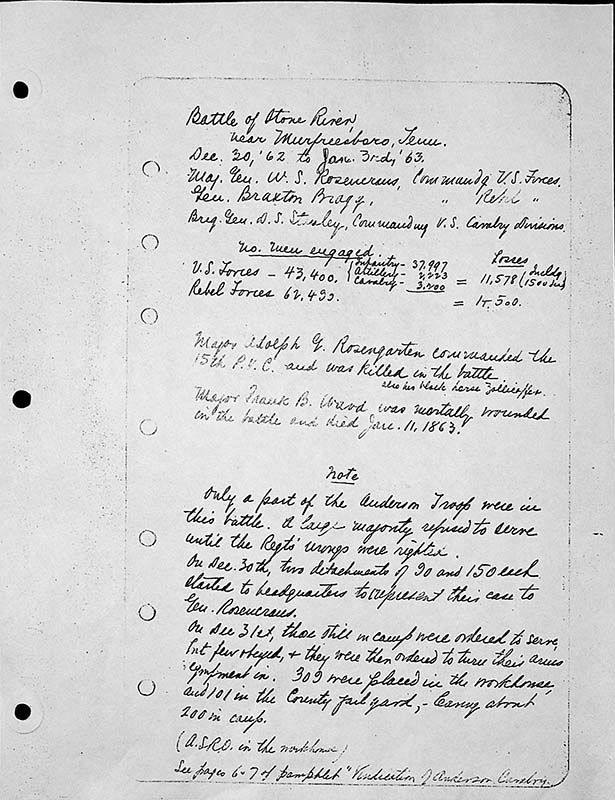 Battle of Stone River,
near Murfreesboro, Tenn.
Dec. 20, '62 to Jan. 3rd, '63.
Maj. Gen. W. S. Rosencrans, Commandg U.S. Forces.
Gen. Braxton Bragg, " Rebel "
Brig. Gen. D. S. Stanley, Commanding U.S. Cavalry divisions.
No. men engaged. Losses
Infantry - 37,997
U.S. Forces - 43,400. Artillery - 2,223 = 11,578 (Incldg 1500
Cavalry - 3,200
Rebel Forces 62,490. = 15,500.
Major Adolph G. Rosengarten commanded the
15th P.V.C. and was killed in the battle
also his black horse Zollicoffer.
Major Frank B. Ward was mortally wounded
in the battle and died Jan. 11, 1863.
Note
Only a part of the Anderson Troop were in
this battle. A large majority refused to serve
until the Regt's wrongs were righted.
On Dec. 30th, two detachments of 90 and 150 each
started to headquarters to represent their case to
Gen. Rosencrans.
On Dec 31st, those still in camp were ordered to serve,
but few obeyed, + they were then ordered to turn their arms
equipment in. 309 were placed in the workhouse,
and 101 in the County jail yard, - leaving about
200 in camp.
(A.S.R.O. in the workhouse)
See pages 6-7 of pamphlet "Vindication of Anderson Cavalry.